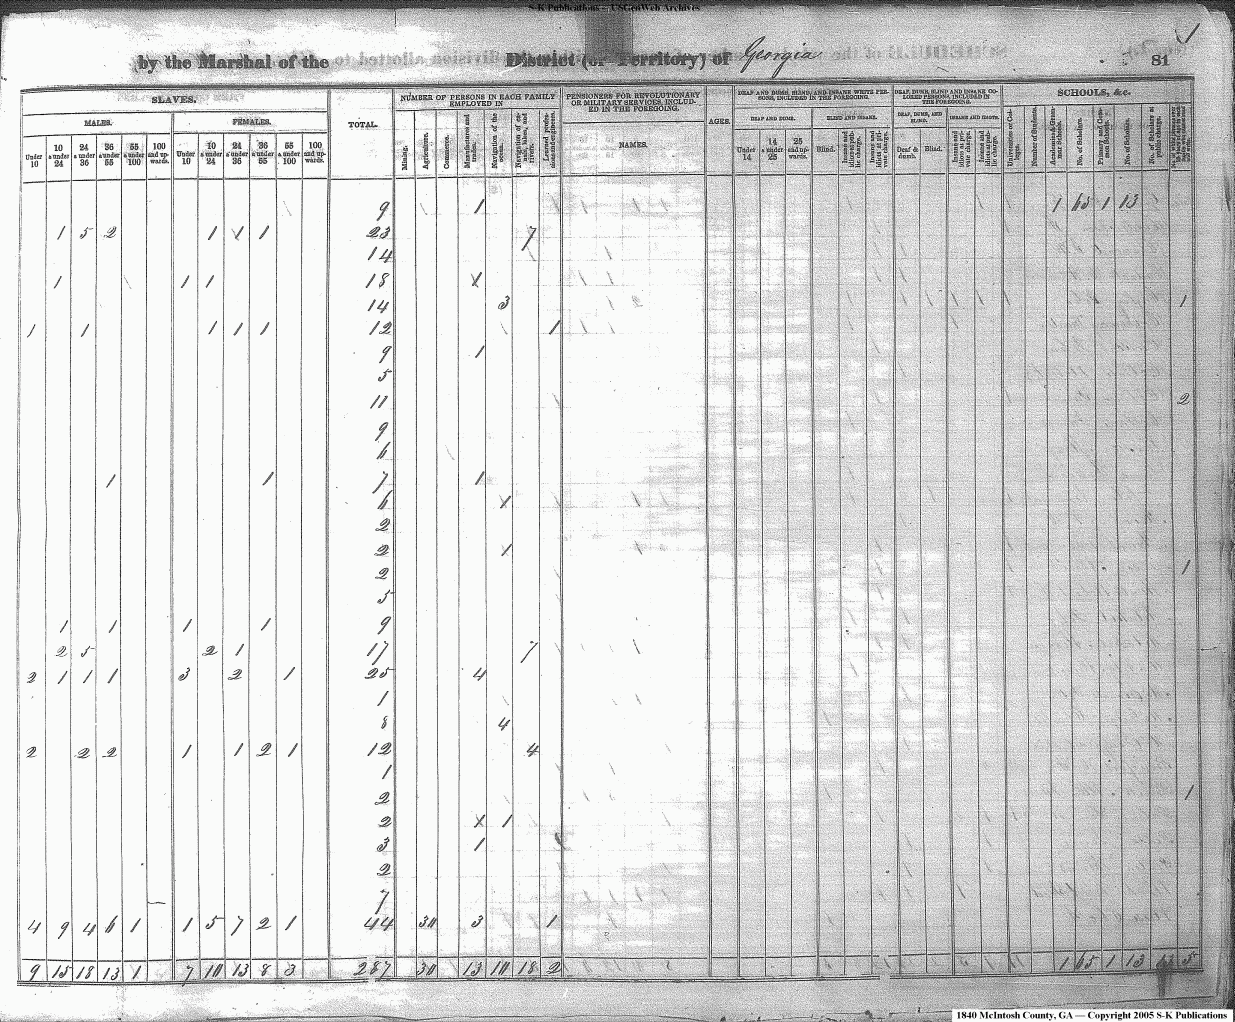 S-K Publications – USGenWeb Archives
by the Marshal of the District (or Territory) of Georgia
81
SLAVES.
MALES.
FEMALES.
Under 10
10 & under 24
24 & under 36
36 & under 55
55 & under 100
100 and upwards.
Under 10
10 & under 24
24 & under 36
36 & under 55
55 & under 100
100 and upwards.
TOTAL.
NUMBER OF PERSONS IN EACH FAMILY EMPLOYED IN
Mining.
Agriculture.
Commerce.
Manufactures and trades.
Navigation of the ocean.
Navigation of canals, lakes, and rivers.
Learned professions and engineers.
PENSIONERS FOR REVOLUTIONARY OR MILITARY SERVICES, INCLUDED IN THE FOREGOING.
NAMES.
AGES.
DEAF AND DUMB, BLIND, AND INSANE WHITE PERSONS, INCLUDED IN THE FOREGOING.
DEAF AND DUMB.
BLIND AND INSANE.
Under 14
14 & under 25
25 and upwards.
Blind.
Insane and idiots at public charge.
Insane and idiots at private charge.
DEAF, DUMB, BLIND AND INSANE COLORED PERSONS, INCLUDED IN THE FOREGOING
DEAF, DUMB, AND BLIND.
INSANE AND IDIOTS.
Deaf & dumb.
Blind.
Insane and idiots at private charge.
Insane and idiots at public charge.
SCHOOLS, &c.
Universities or Colleges.
Number of Students.
Academies & Grammar Schools.
No. of Scholars.
Primary and Common Schools.
No. of Scholars.
No. of Scholars at public charge.
9 1 1 65 1 13
1 5 2 1 1 1 23 7
14
1 1 1 18 X
14 3 1
1 1 1 1 1 12 1
9 1
5
11 2
9
6
1 1 7 1
6 X
2
2 X
2 1
5
1 1 1 1 9
2 5 2 1 17 7
2 1 1 1 3 2 1 25 4
1
8 4
2 2 2 1 1 2 1 12 4
1
2 1
2 X 1
3 1
2
7
4 9 4 6 1 1 5 7 2 1 44 30 3 1
9 15 18 13 1 7 10 13 8 3 287 30 13 10 18 2 1 65 1 13 5
1840 McIntosh County, GA — Copyright 2005 S-K Publications